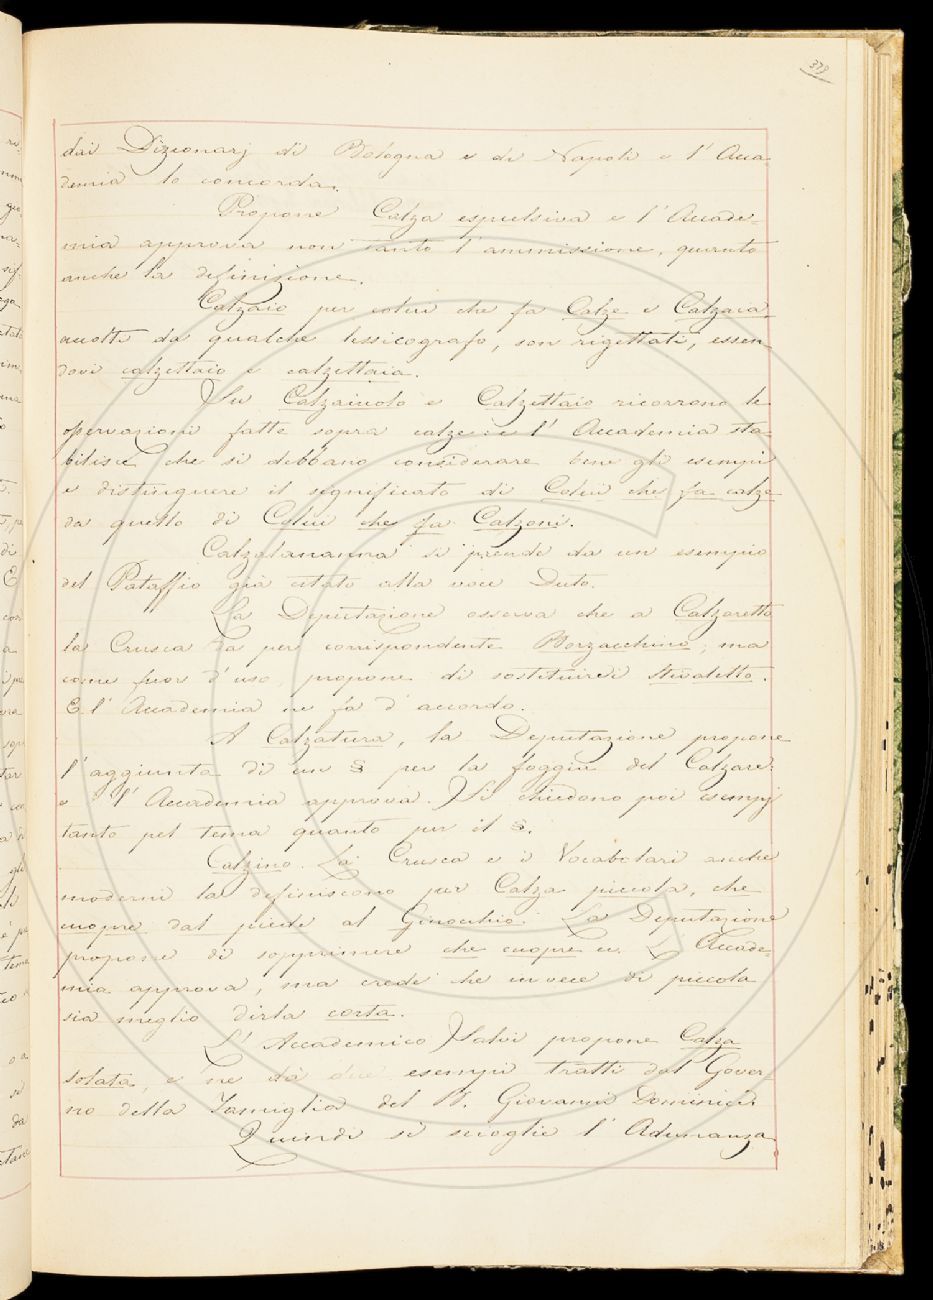 379
dai Dizionarj di Bologna e di Napoli e l'Acca-
demia lo concorda.
Propone Calza espulsiva e l'Accade-
mia approva non tanto l'ammissione, quanto
anche la definizione.
Calzaio per colui che fa Calze e Calzaia,
accolti da qualche lessicografo, son rigettati, essen-
dovi calzettaio e calzettaia.
Su Calzaiuolo e Calzettaio ricorrono le
osservazioni fatte sopra calze: e l'Accademia sta-
bilisce che si debbano considerare bene gli esempi
e distinguere il significato di Colui che fa calze
da quello di Colui che fa Calzoni.
Calzalananna si prende da un esempio
del Pataffio già citato alla voce Duto.
La Deputazione osserva che a Calzaretto
la Crusca dà per corrispondente Borzacchino; ma
come fuor d'uso, propone di sostituirvi Stivaletto.
E l'Accademia ne fa d'accordo.
A Calzatura, la Deputazione propone
l'aggiunta di un § per la foggia del Calzare:
e l'Accademia approva. Si chiedono poi esempj
tanto pel tema quanto per il §.
Calzino. La Crusca e i Vocabolari anche
moderni la definiscono per Calza piccola, che
cuopre dal piede al Ginocchio. La Deputazione
propone di sopprimere che cuopre ec. L'Accade-
mia approva, ma crede che invece di piccola
sia meglio dirla corta.
L'Accademico Salvi propone Calza
solata, e ne dà due esempi tratti dal Gover-
no della Famiglia del B. Giovanni Dominici.
Quindi si scioglie l'Adunanza